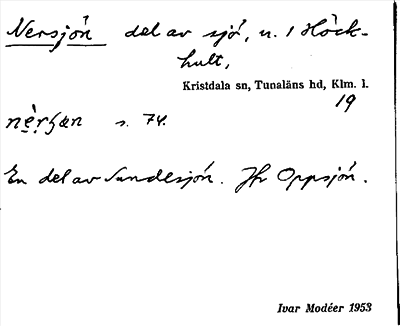 Nersjön del av sjö, u. 1 Höck-
hult,
Kristdala sn, Tunaläns hd, Klm. l.
19
s. 74.
En del av Sundesjön. Jfr Oppsjön.
Ivar Modéer 1953